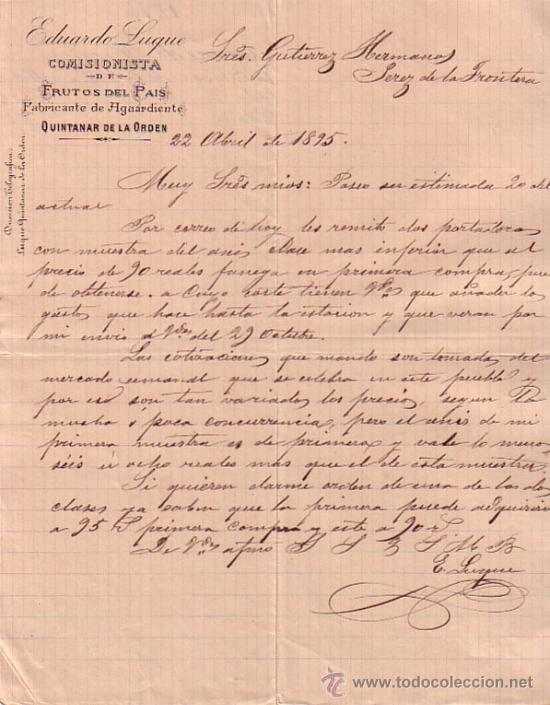 Eduardo Luque
COMISIONISTA
DE
FRUTOS DEL PAIS
Fabricante de Aguardiente
QUINTANAR DE LA ORDEN
Dirección Telegráfica:
Luque Quintanar de la Orden.
Sres. Gutierrez Hermanos
Jerez de la Frontera
22 Abril de 1895.
Muy Sres mios: Poseo su estimada 20 del
actual
Por correo de hoy les remito dos portadoras
con muestra del anis clase mas inferior que al
precio de 90 reales fanega en primera compra, pue
de obtenerse. a cuyo coste tienen Vdes que añadir los
gastos que hace hasta la estacion y que veran por
mi envio a Vdes del 29 Octubre.
Las cotizaciones que mando son tomadas del
mercado semanal que se celebra en este pueblo y
por eso son tan variados los precios, segun la
mucha ó poca concurrencia, pero el anis de mi
primera muestra es de primera y vale lo menos
séis ú ocho reales mas que el de esta muestra.
Si quieren darme orden de una de las dos
clases ya saben que la primera puede adquirirse
a 95 rs primera compra y este a 90 rs
De Vdes afmo S S Q S M B
E. Luque
todocoleccion
www.todocoleccion.net